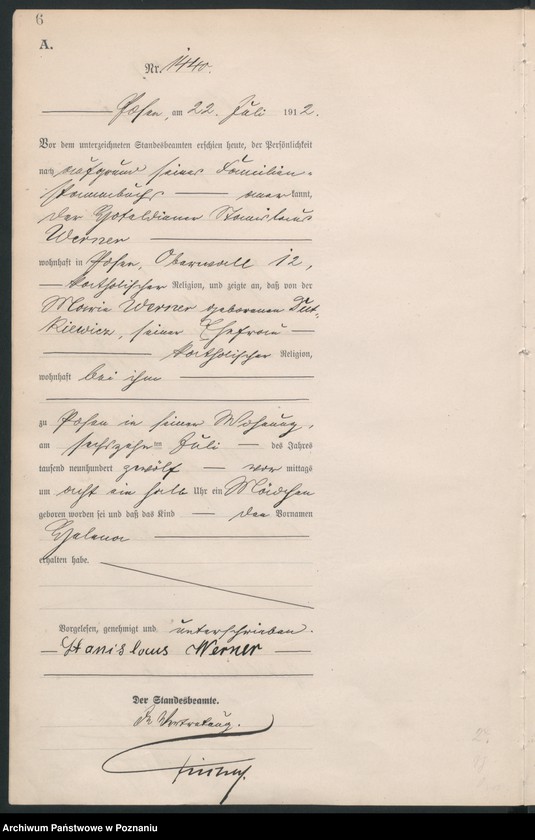 6
A.
Nr. 1440.
Posen, am 22. Juli 1912.
Vor dem unterzeichneten Standesbeamten erschien heute, der Persönlichkeit
nach aufgrund seines Familien-
stammbuchs anerkannt,
der Hoteldiener Stanislaus
Werner
wohnhaft in Posen, Oberwall 12,
katholischer Religion, und zeigte an, daß von der
Marie Werner geborenen
seiner Ehefrau
katholischer Religion,
wohnhaft bei ihm
zu Posen in seiner Wohnung,
am sechszehnten Juli des Jahres
tausend neunhundert zwölf vormittags
um acht ein halb Uhr ein Mädchen
geboren worden sei und daß das Kind den Vornamen
Helena
erhalten habe.
Vorgelesen, genehmigt und unterschrieben.
Stanislaus Werner
Der Standesbeamte.
In Vertretung.
Archiwum Państwowe w Poznaniu